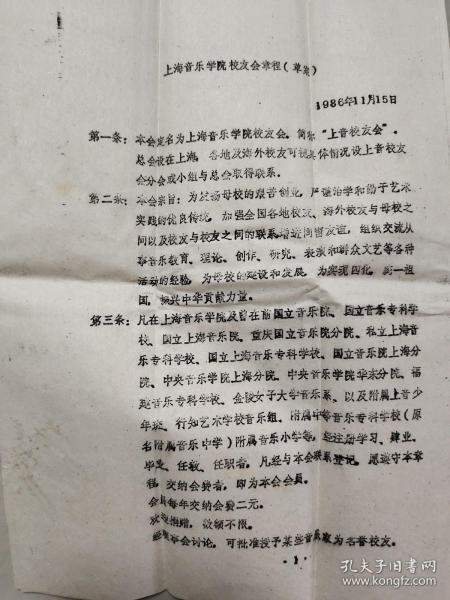 上海音乐学院校友会章程（草案）
1986年11月15日
第一条：本会定名为上海音乐学院校友会。简称“上音校友会”。
总会设在上海，各地及海外校友可视具体情况设上音校友
会分会或小组与总会取得联系。
第二条：本会宗旨：为发扬母校的艰苦创业，严谨治学和勇于艺术
实践的优良传统，加强全国各地校友、海外校友与母校之
间以及校友与校友之间的联系增进同窗友谊，组织交流从
事音乐教育、理论、创作、研究、表演和群众文艺等各种
活动的经验，为母校的建设和发展，为实现四化，统一祖
国，振兴中华贡献力量。
第三条：凡在上海音乐学院及曾在前国立音乐院、国立音乐专科学
校、国立上海音乐院、重庆国立音乐院分院、私立上海音
乐专科学校、国立上海音乐专科学校、国立音乐院上海分
院、中央音乐学院上海分院、中央音乐学院华东分院、福
建音乐专科学校、金陵女子大学音乐系、以及附属上音少
年班、行知艺术学校音乐组、附属中等音乐专科学校（原
名附属音乐中学）附属音乐小学等，经注册学习、肄业、
毕业、任教、任职者，凡经与本会联系登记，愿遵守本章
程，交纳会费者，即为本会会员。
会员每年交纳会费二元。
欢迎捐赠，数额不限。
经本会讨论，可批准授予某些音乐家为名誉校友。
·1·
孔夫子旧书网